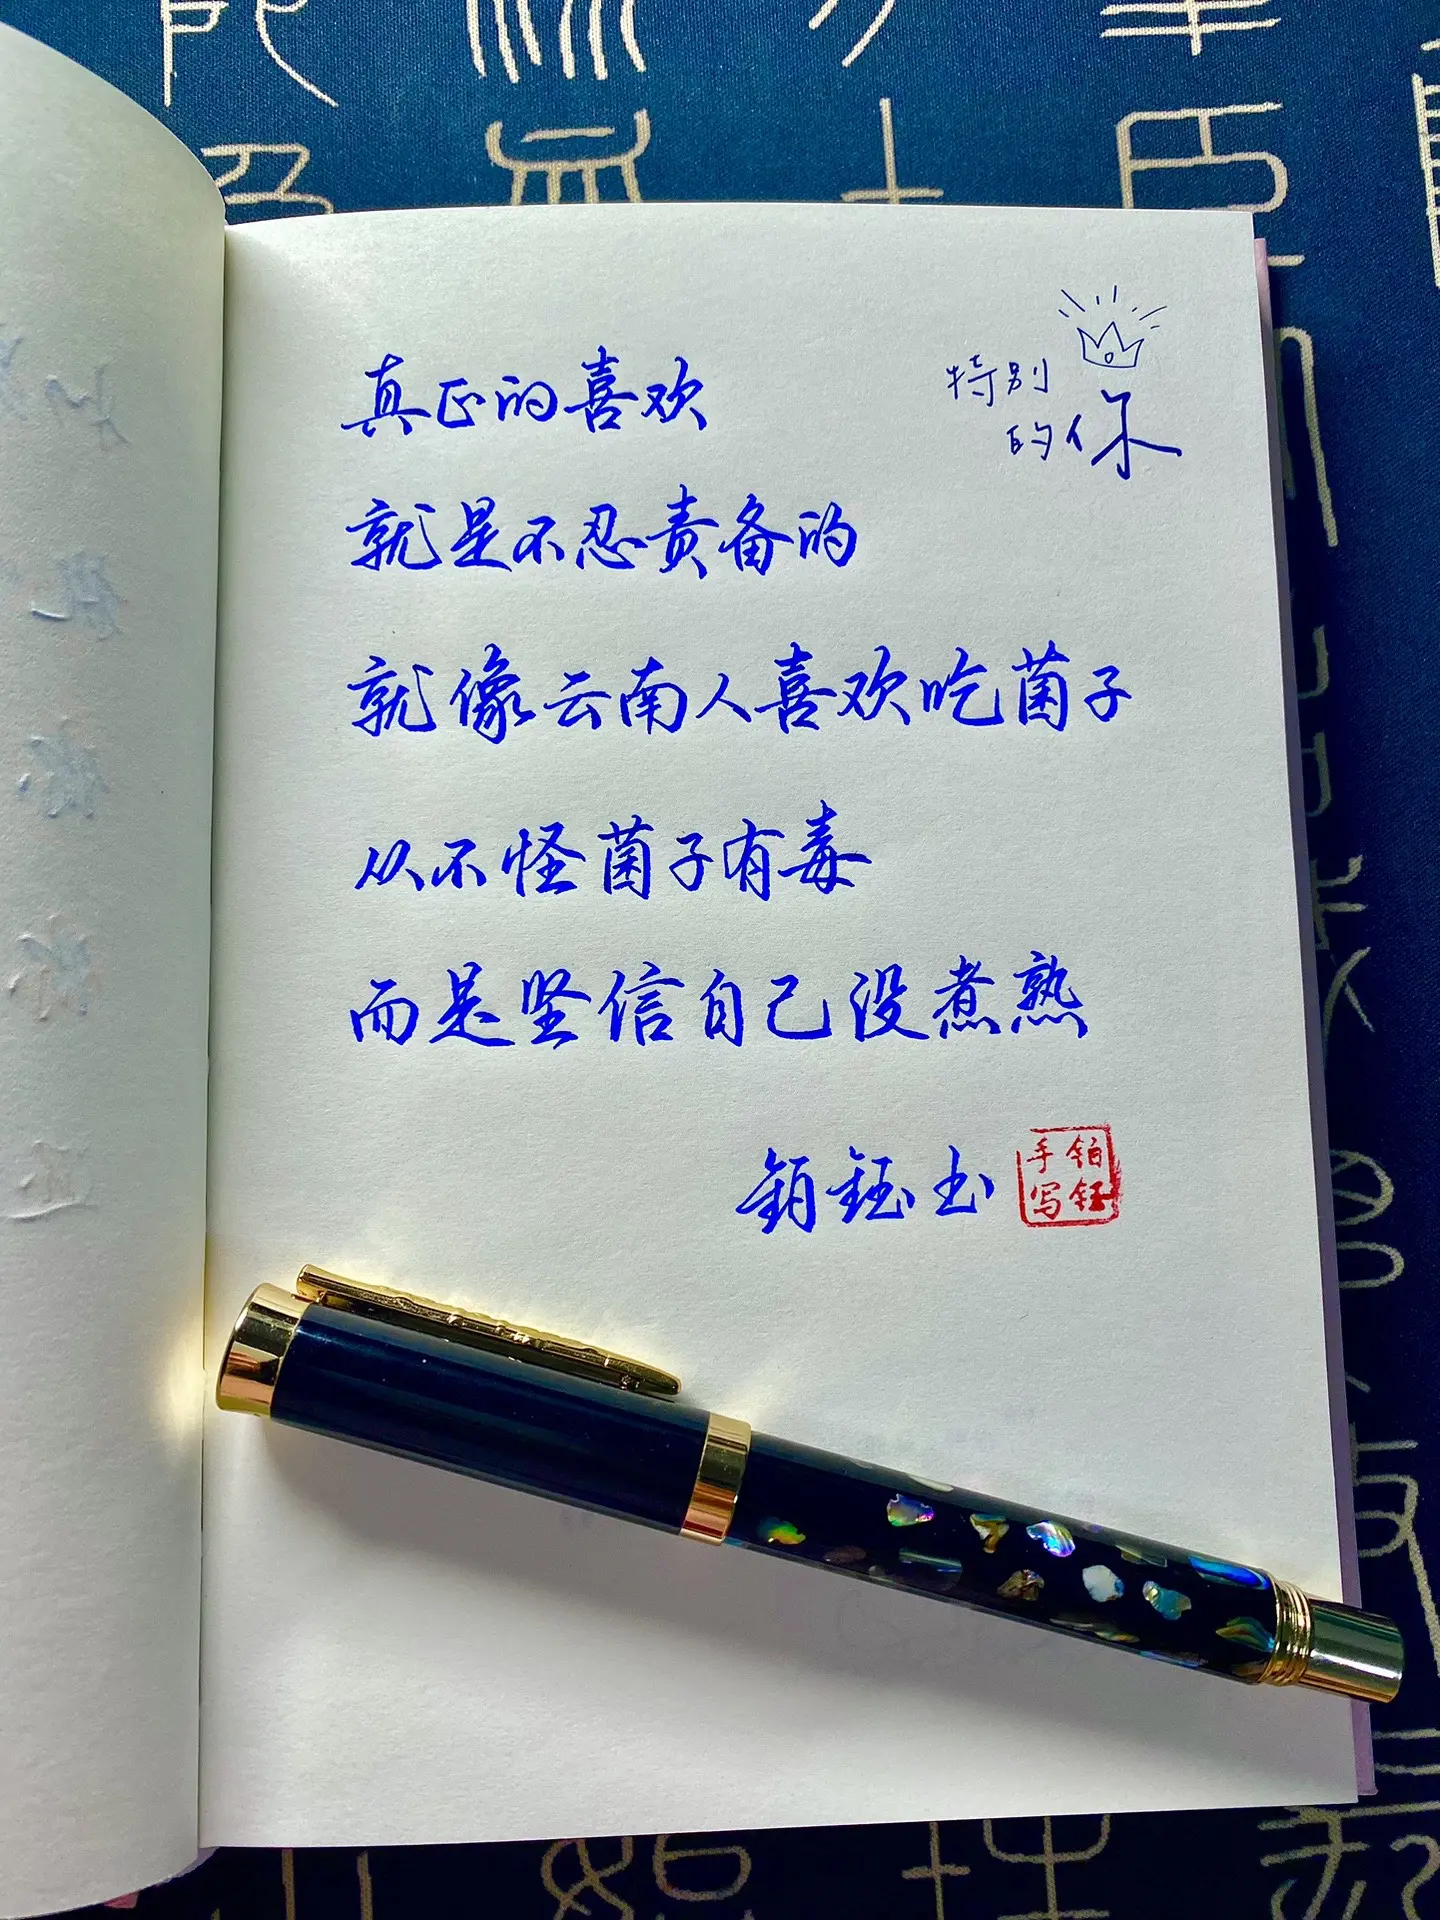 特别
的你
真正的喜欢
就是不忍责备的
就像云南人喜欢吃菌子
从不怪菌子有毒
而是坚信自己没煮熟
铂钰书
铂钰
手写